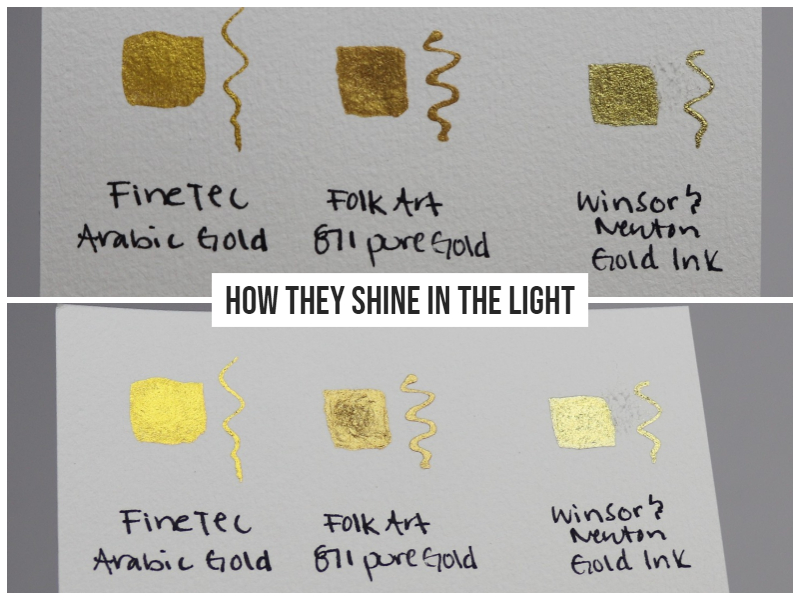 FineTec
Arabic Gold
Folk Art
871 pure Gold
Winsor &
Newton
Gold Ink
HOW THEY SHINE IN THE LIGHT
FineTec
Arabic Gold
Folk Art
871 pure Gold
Winsor &
Newton
Gold Ink